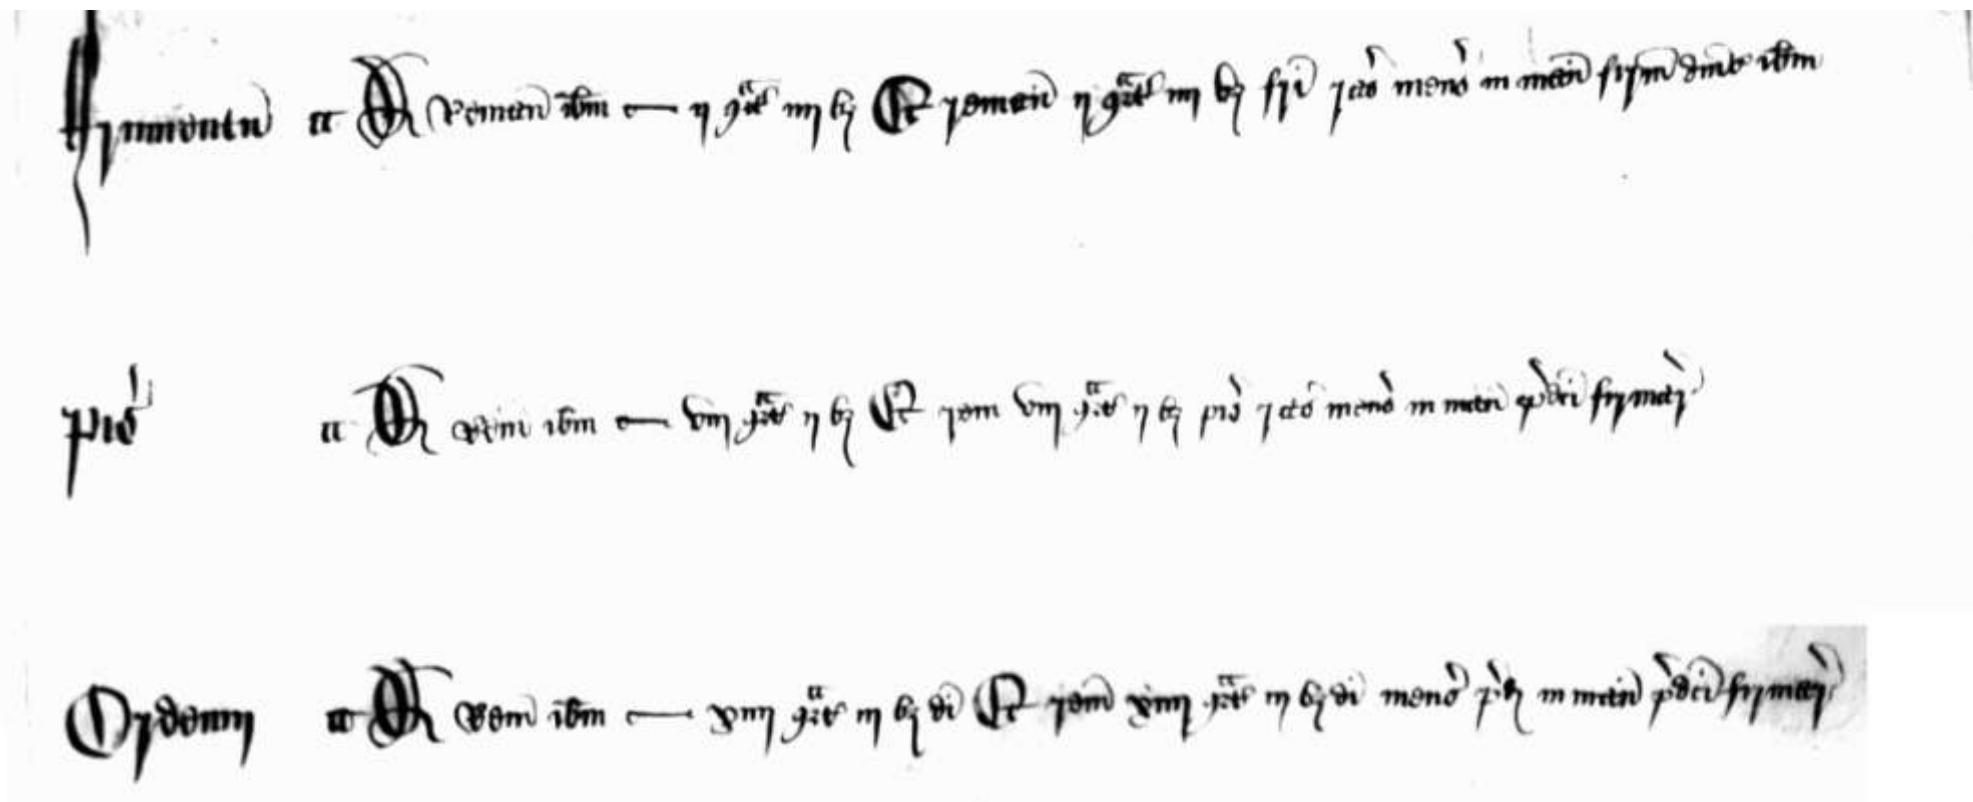 ffrumentu De Reman ibm — ij qrt iiij bz Et reman ij qrt iiij bz fri ras mens in man firm dni ibm
Pis De Rem ibm — viij qrt ij bz Et rem viij qrt ij bz pis ras mens in man pdci firmar
Ordeum De Rem ibm — xiiij qrt iij bz di Et rem xiiij qrt iij bz di mens pd in man pdci firmar